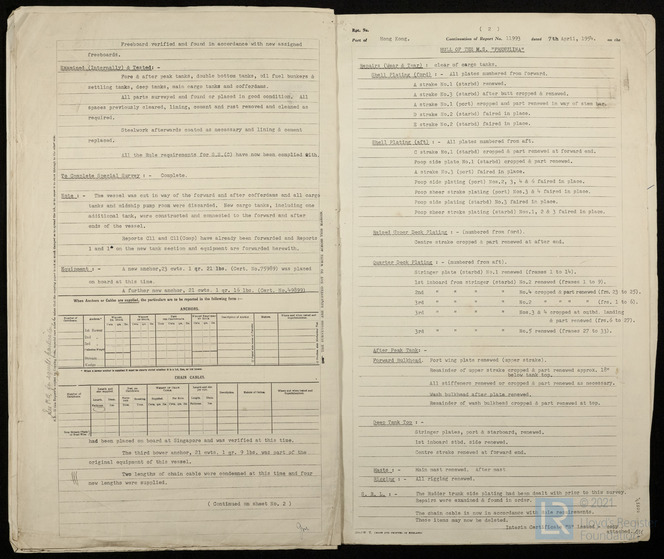 Freeboard verified and found in accordance with new assigned
freeboards.
Examined (Internally) & Tested: -
Fore & after peak tanks, double bottom tanks, oil fuel bunkers &
settling tanks, deep tanks, main cargo tanks and cofferdams.
All parts surveyed and found or placed in good condition. All
spaces previously cleared, lining, cement and rust removed and cleaned as
required.
Steelwork afterwards coated as necessary and lining & cement
replaced.
All the Rule requirements for S.S.(2) have now been complied with.
To Complete Special Survey: - Complete.
Note: - The vessel was cut in way of the forward and after cofferdams and all cargo
tanks and midship pump room were discarded. New cargo tanks, including one
additional tank, were constructed and connected to the forward and after
ends of the vessel.
Reports C11 and C11(Comp) have already been forwarded and Reports
1 and 1* on the new tank section and equipment are forwarded herewith.
Equipment: - A new anchor, 23 cwts. 1 qr. 21 lbs. (Cert. No.75989) was placed
on board at this time.
A further new anchor, 21 cwts. 1 qr. 16 lbs. (Cert. No.49899)
When Anchors or Cables are supplied, the particulars are to be reported in the following form:—
ANCHORS.
CHAIN CABLES.
had been placed on board at Singapore and was verified at this time.
The third bower anchor, 21 cwts. 1 qr. 9 lbs. was part of the
original equipment of this vessel.
Two lengths of chain cable were condemned at this time and four
new lengths were supplied.
( Continued on sheet No. 2 )
Rpt. 9a.
( 2 )
Port of Hong Kong. Continuation of Report No. 11993 dated 7th April, 1954. on the
HULL OF THE M.S. "FRENULINA"
Repairs (Wear & Tear): clear of cargo tanks.
Shell Plating (ford): - All plates numbered from forward.
A strake No.1 (starbd) renewed.
A strake No.3 (starbd) after butt cropped & renewed.
A strake No.1 (port) cropped and part renewed in way of stem bar.
D strake No.2 (starbd) faired in place.
E strake No.2 (starbd) faired in place.
Shell Plating (aft) : - All plates numbered from aft.
D strake No.1 (starbd) cropped & part renewed at forward end.
Poop side plate No.1 (starbd) cropped & part renewed.
A strake No.3 (port) faired in place.
Poop side plating (port) Nos.2, 3, 4 & 6 faired in place.
Poop sheer strake plating (port) Nos.3 & 4 faired in place.
Poop side plating (starbd) No.3 faired in place.
Poop sheer strake plating (starbd) Nos.1, 2 & 3 faired in place.
Raised Fover Deck Plating : - (numbered from ford).
Centre strake cropped & part renewed at after end.
Quarter Deck Plating : - (numbered from aft).
Stringer plate (starbd) No.1 renewed (frames 1 to 14).
1st inboard from stringer (starbd) No.2 renewed (frames 1 to 9).
2nd " " " " No.4 cropped & part renewed (frs. 23 to 25).
3rd " " " " No.2 " " " " (frs. 1 to 6).
3rd " " " " Nos.3 & 4 cropped at outbd. landing
& part renewed (frs.6 to 27).
3rd " " " " No.5 renewed (frames 27 to 33).
After Peak Tank: -
Forward Bulkhead. Port wing plate renewed (upper strake).
Remainder of upper strake cropped & part renewed approx. 18"
below tank top.
All stiffeners renewed or cropped & part renewed as necessary.
Wash bulkhead after plate renewed.
Remainder of wash bulkhead cropped & part renewed at top.
Deep Tank Top : -
Stringer plates, port & starboard, renewed.
1st inboard stbd. side renewed.
Centre strake renewed at forward end.
Masts : - Main mast renewed.
Rigging : - All rigging renewed.
The Rudder trunk side plating had been dealt with prior to this survey.
Repairs were examined & found in order.
The chain cable is now in accordance with Rule requirements.
These items may now be deleted.
Interim Certificate
© 2021
LR
Lloyd's Register
Foundation